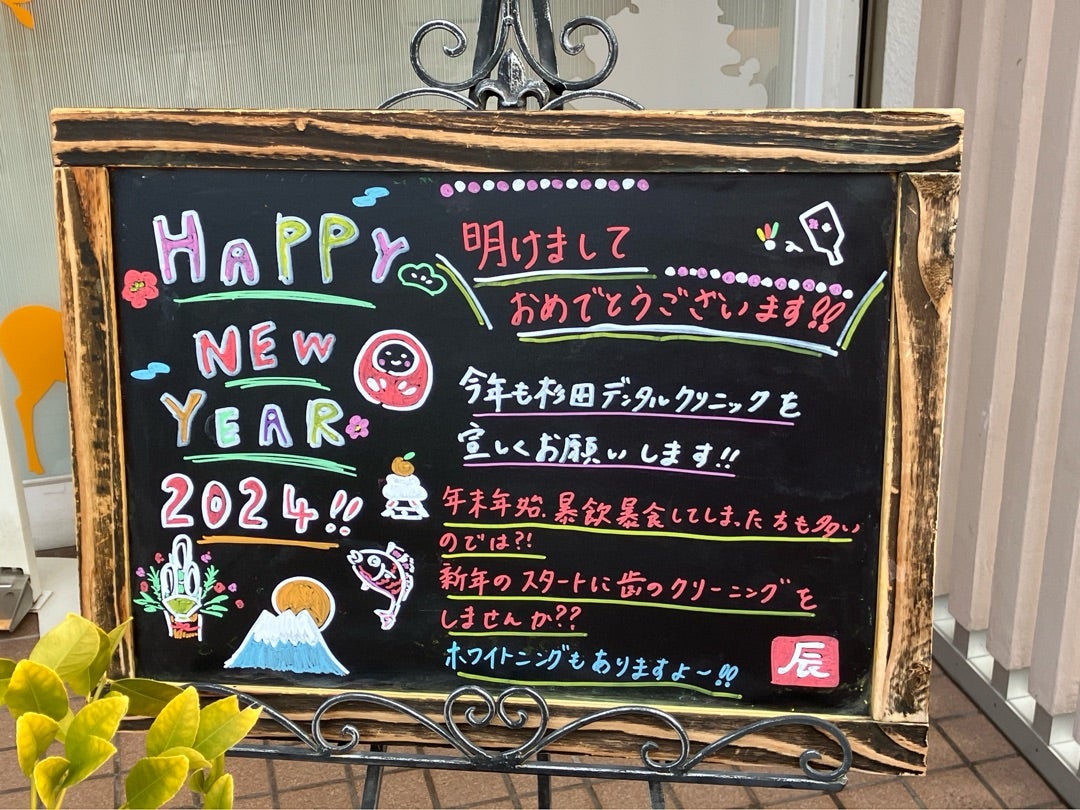 HAPPY
NEW
YEAR
2024!!
明けまして
おめでとうございます!!
今年も杉田デンタルクリニックを
宜しくお願いします!!
年末年始、暴飲暴食してしまった方も多い
のでは?!
新年のスタートに歯のクリーニングを
しませんか??
ホワイトニングもありますよ~!!
辰